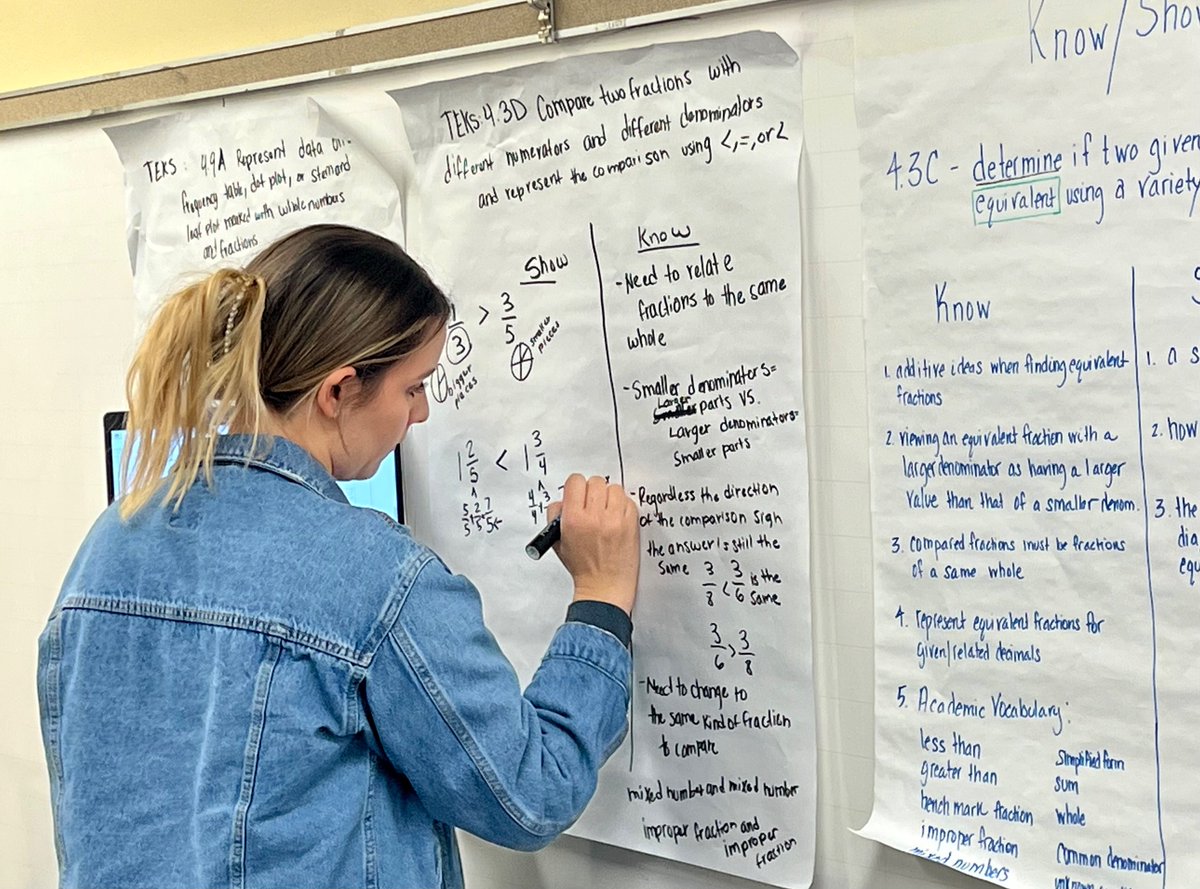 TEKS: 4.9A Represent data on
frequency table, dot plot, or stem and
leaf plot marked with whole numbers
and fractions
TEKS: 4.3D Compare two fractions with
different numerators and different denominators
and represent the comparison using <, =, or <
Show
3 > 3/5
bigger pieces
smaller pieces
1 2/5 < 1 3/4
5/5 + 2/5 = 7/5
4/4 + 3
Know
- Need to relate
fractions to the same
whole
- Smaller denominators =
Larger
parts vs.
Larger denominators =
Smaller parts
- Regardless the direction
of the comparison sign
the answer is still the
same 3/8 < 3/6 is the same
3/6 > 3/8
- Need to change to
the same kind of fraction
to compare
mixed number and mixed number
improper fraction and
improper
fraction
Know/Sho
4.3C - determine if two given
equivalent using a variety
Know
1. additive ideas when finding equivalent
fractions
2. viewing an equivalent fraction with a
larger denominator as having a larger
value than that of a smaller denom.
3. compared fractions must be fractions
of a same whole
4. represent equivalent fractions for
given/related decimals
5. Academic Vocabulary:
less than
greater than
bench mark fraction
improper fraction
mixed numbers
simplified form
sum
whole
common denominator
1. a s
2. how
3. the
dia
equ